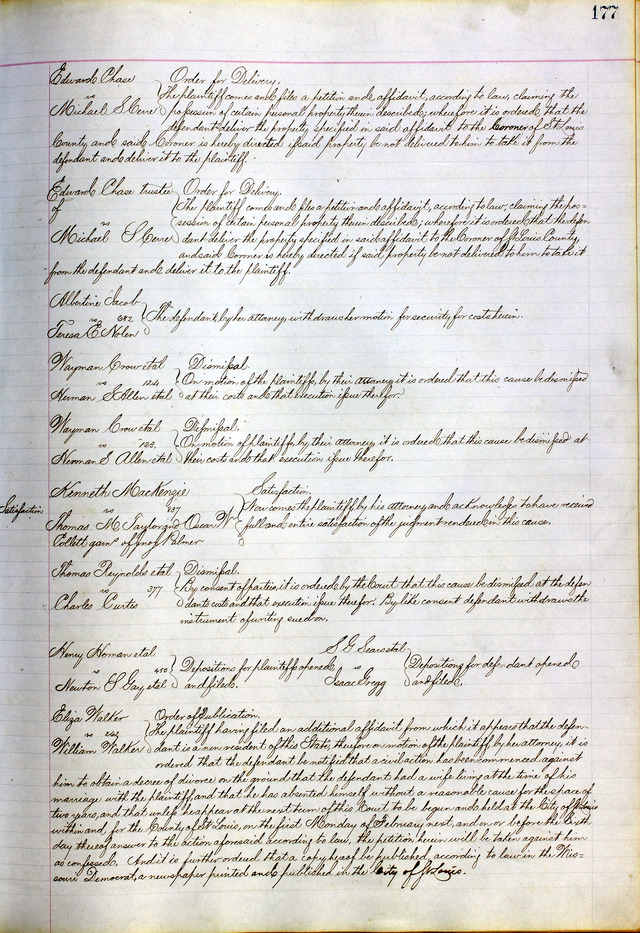 177
Edward Chase } Order for Delivery.
vs
The plaintiff comes and files a petition and affidavit, according to law, claiming the
Michael S Cerre possession of certain personal property therein described, wherefore it is ordered that the
defendant deliver the property specified in said affidavit to the Coroner of St Louis
County and said Coroner is hereby directed if said property be not delivered to him to take it from the
defendant and deliver it to the plaintiff.
Edward Chase trustee } Order for Delivery.
of
The plaintiff comes and files a petition and affidavit, according to law, claiming the pos=
vs
session of certain personal property therein described; wherefore it is ordered that the defen
Michael S Cerre dant deliver the property specified in said affidavit to the Coroner of St Louis County,
and said Coroner is hereby directed if said property be not delivered to him to take it
from the defendant and deliver it to the plaintiff.
Albertine Jacob
vs 682 } The defendant, by her attorney, withdraws her motion for security for costs herein.
Teresa E Nolen
Wayman Crow etal } Dismissal
vs 124 On motion of the plaintiffs, by their attorney it is ordered that this cause be dismissed
Herman S Allen etal at their costs and that execution issue therefor.
Wayman Crow etal } Dismissal.
vs 125 On motion of plaintiffs, by their attorney, it is ordered that this cause be dismissed at
Herman S Allen etal their costs and that execution issue therefor.
Kenneth MacKenzie } Satisfaction.
Satisfaction
vs 937 Now comes the plaintiff by his attorney and acknowledges to have received
Thomas M Taylor and Oscar W. full and entire satisfaction of the judgment rendered in this cause.
Collett garn of Palmer
Thomas Reynolds etal } Dismissal.
vs 377 By consent of parties, it is ordered by the Court that this cause be dismissed at the defen
Charles Curtis dants costs and that execution issue therefor. By like consent defendant withdraws the
instrument of writing sued on.
Henry Homan etal
vs 450 } Depositions for plaintiffs opened
Newton S Gay etal and filed.
S G Sears etal
vs } Depositions for defendant opened
Isaac Gregg and filed.
Eliza Walker } Order of Publication.
vs
The plaintiff having filed an additional affidavit from which it appears that the defen
William Walker dant is a non resident of this State, therefore on motion of the plaintiff, by her attorney, it is
ordered that the defendant be notified that a civil action has been commenced against
him to obtain a decree of divorce on the ground that the defendant had a wife living at the time of his
marriage with the plaintiff, and that he has absented himself without a reasonable cause for the space of
two years, and that unless he appear at the next term of this Court to be begun and held at the City of St Louis
within and for the County of St Louis, on the first Monday of February next, and on or before the sixth
day thereof answer to the action aforesaid according to law, the petition herein will be taken against him
as confessed. And it is further ordered that a copy hereof be published, according to law in the Mis=
souri Democrat, a newspaper printed and published in the City of St Louis.